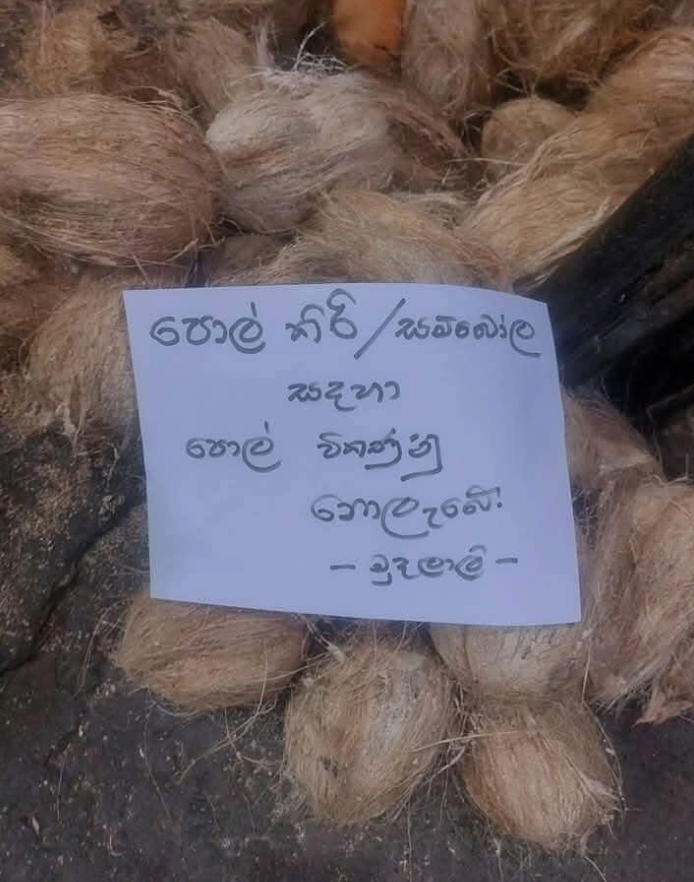 පොල් කිරි/සම්බෝල
සඳහා
පොල් විකුණනු
නොලැබේ.
- මුදලාලි -